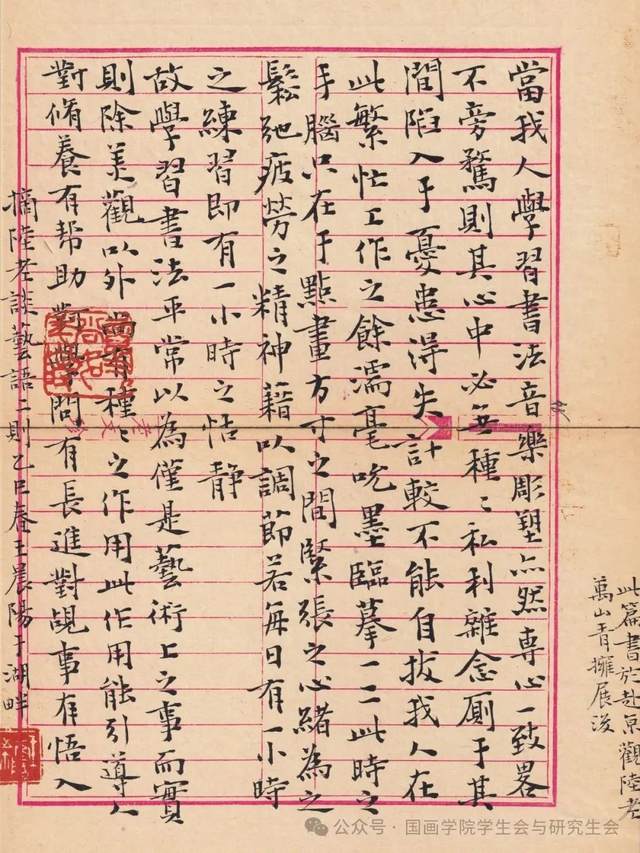 當我人學習書法音樂彫塑亦然專心一致畧
不旁騖則其心中必無種〻私利雜念厠于其
間陷入于憂患得失計較不能自拔我人在
此繁忙工作之餘濡毫吮墨臨摹一二此時之
手腦只在于點畫方寸之間緊張之心緒為之
鬆弛疲勞之精神藉以調節若每日有一小時
之練習即有一小時之恬静
故學習書法平常以為僅是藝術上之事而實
則除美觀以外尚有種〻之作用此作用能引導人
對脩養有帮助對學問有長進對覘事有悟入
摘陸老談藝語二則乙巳春王晨陽于湖畔
此篇書於赴京觀陸老
萬山青擁展後
公众号·国画学院学生会与研究生会